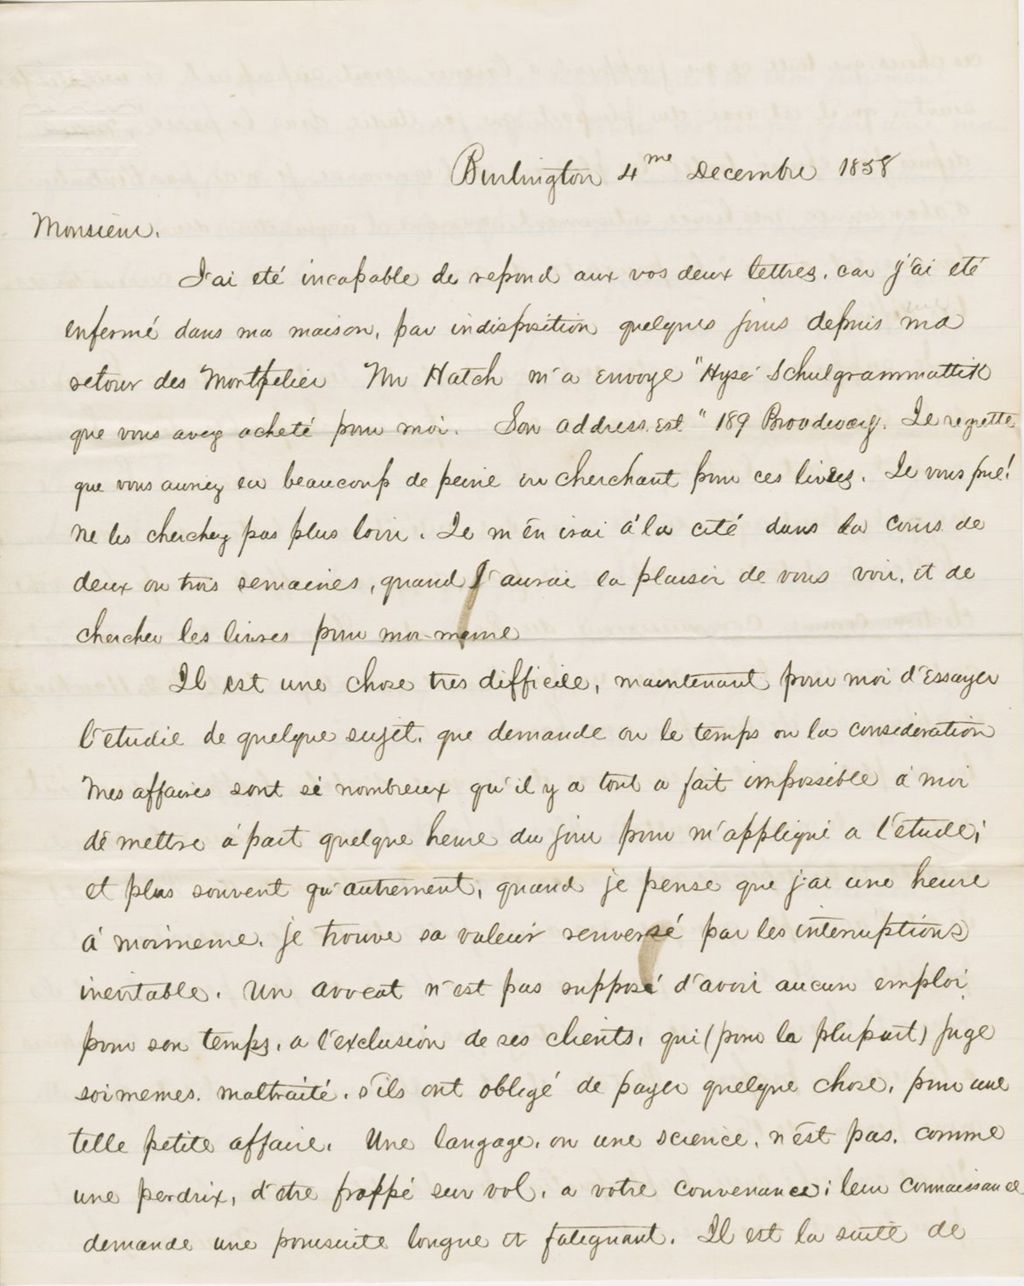 Burlington 4me Decembre 1858
Monsieur.
J'ai eté incapable de repond aux vos deux lettres, car j'ai eté
enfermé dans ma maison, par indisposition quelques jours depuis ma
retour des Montpelier Mr Hatch m'a envoyé "Hysé Schulgrammattik
que vous avez acheté pour moi. Son address est "189 Broadway. Je regrette
que vous auriez eu beaucoup de peine en cherchant pour ces livres. Je vous prie!
ne les cherchez pas plus loin. Je m'en irai á la cité dans la cours de
deux ou trois semaines, quand J'aurai la plaisir de vous voir, et de
chercher les livres pour moi-meme
Il est une chose tres difficile, maintenant pour moi d'essayer
l'etudie de quelque sujet, que demande ou le temps ou la consideration
Mes affaires sont si nombreux qu'il y a tout a fait impossible á moi
de mettre á part quelque heure du jour pour m'appliqué a l'étude;
et plus souvent qu'autrement, quand je pense que j'ai une heure
á moimeme, je trouve sa valeur renversé par les interruptions
inevitable. Un avocat n'est pas supposé d'avoir aucun emploi
pour son temps, a l'exclusion de ses clients, qui (pour la plupart) juge
soimemes, maltraité, s'ils ont obligé de payer quelque chose, pour une
telle petite affaire. Une langage, ou une science, n'est pas, comme
une perdrix, d'etre frappé sur vol, a votre convenance; leur connaissance
demande une poursuite longue et fatiguant. Il est la suite de